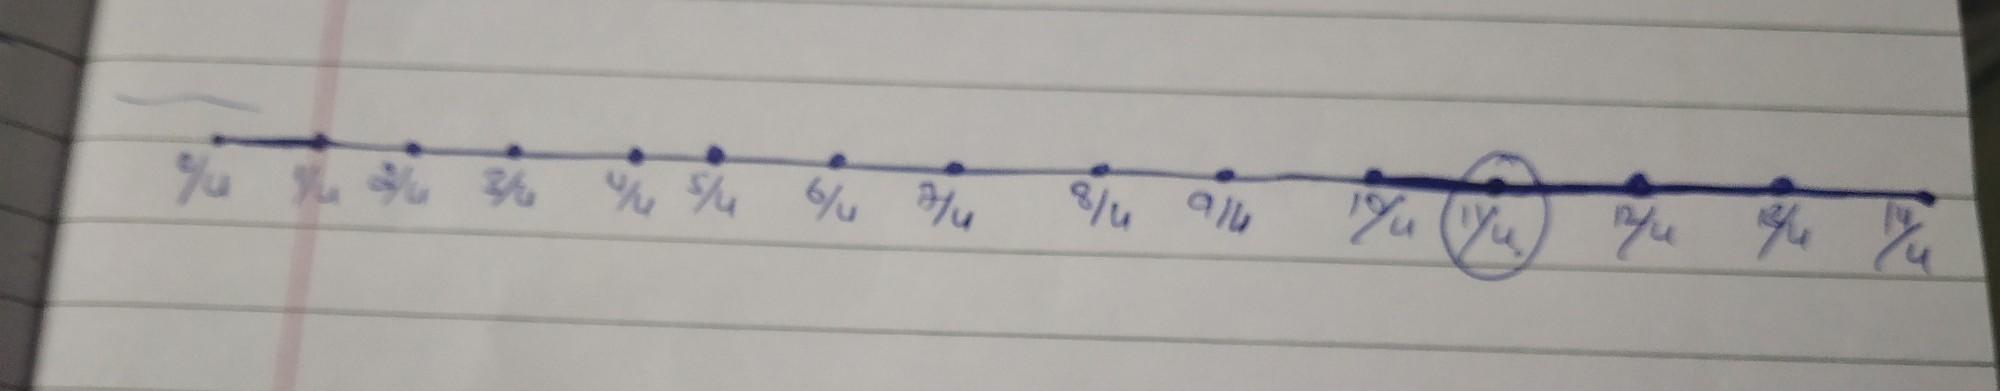 0/4 1/4 2/4 3/4 4/4 5/4 6/4 7/4 8/4 9/4 10/4 11/4 12/4 13/4 14/4